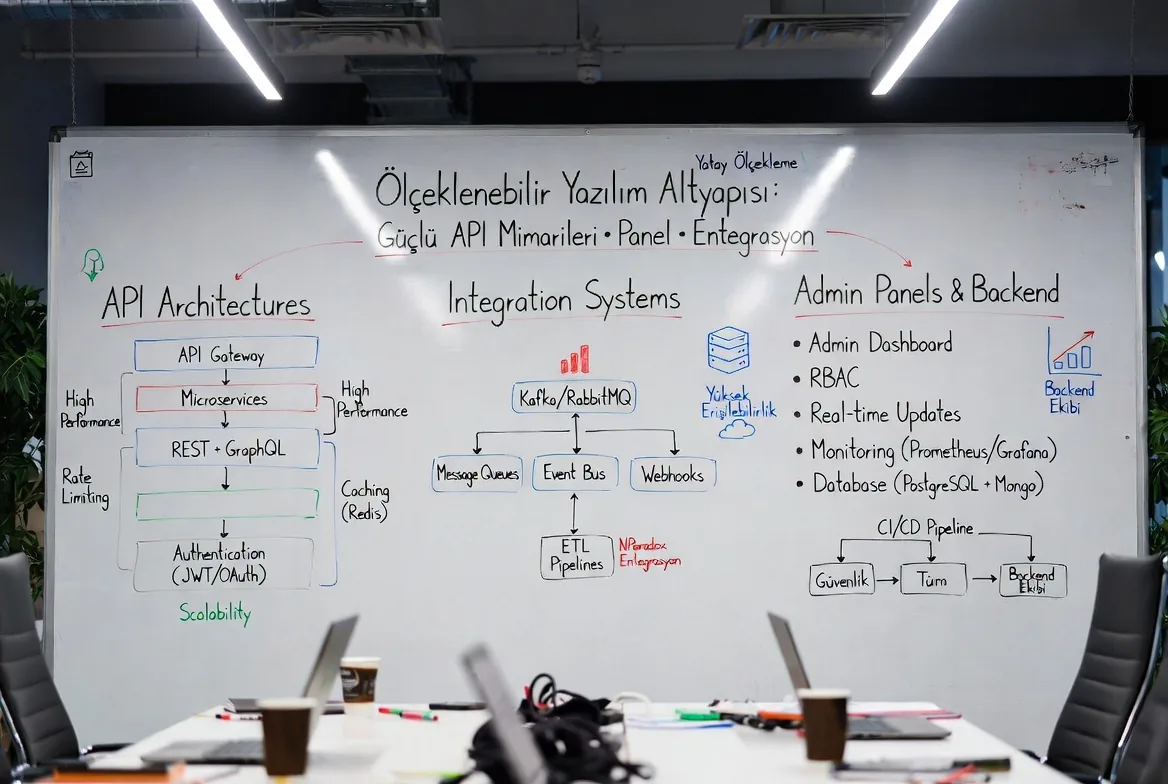 Yatay Ölçekleme
Ölçeklenebilir Yazılım Altyapısı:
Güçlü API Mimarileri • Panel • Entegrasyon
API Architectures
API Gateway
Microservices
REST + GraphQL
Authentication
(JWT/OAuth)
Scalability
High
Performance
Rate
Limiting
High
Performance
Caching
(Redis)
Integration Systems
Kafka/RabbitMQ
Message Queues
Event Bus
Webhooks
ETL
Pipelines
NParadox
Entegrasyon
Yüksek
Erişilebilirlik
Admin Panels & Backend
• Admin Dashboard
• RBAC
• Real-time Updates
• Monitoring (Prometheus/Grafana)
• Database (PostgreSQL + Mongo)
Backend
Ekibi
CI/CD Pipeline
Güvenlik
Tüm
Backend
Ekibi